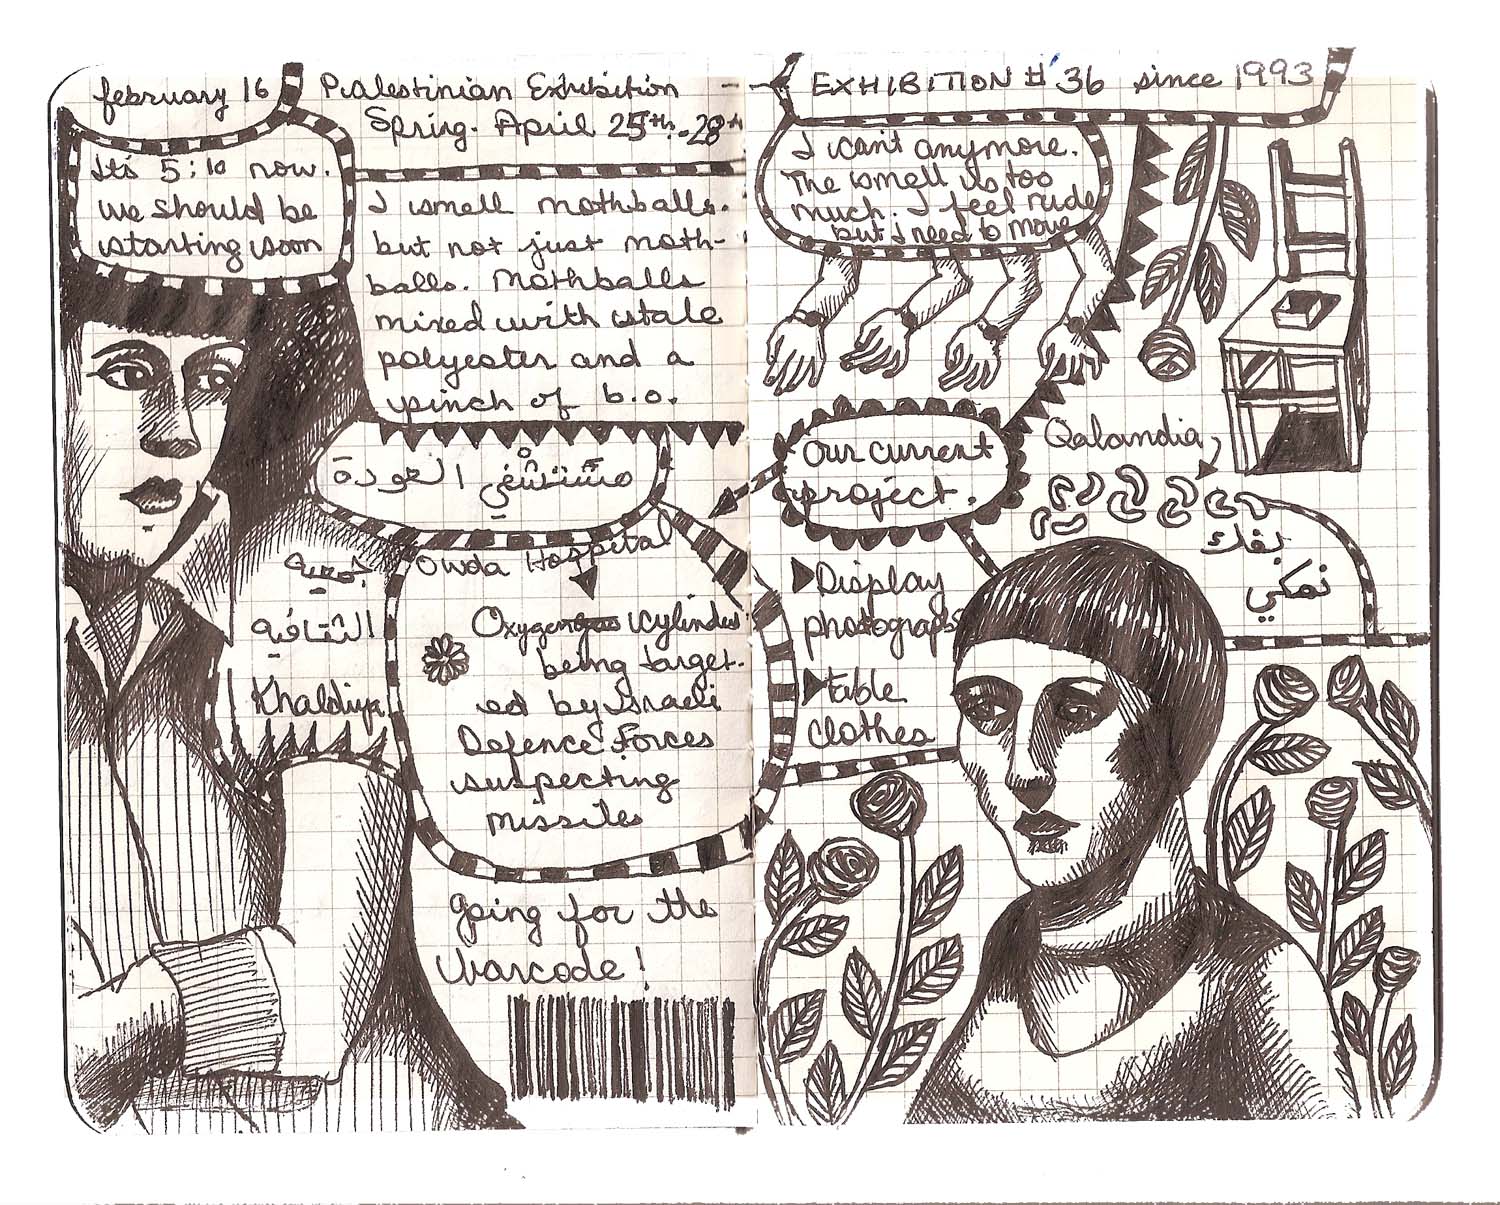 february 16
It's 5:10 now.
we should be
starting soon
Palestinian Exhibition
Spring. April 25th - 28th
I smell mothballs.
but not just moth-
balls. Mothballs
mixed with stale
polyester and a
pinch of b.o.
مستشفى العودة
جمعية
الثقافية
Khaldiya
Owda Hospital
Oxygen cylinders
being target-
ed by Israeli
Defence Forces
suspecting
missiles
going for the
barcode!
EXHIBITION #36 since 1993
I can't anymore.
The smell is too
much. I feel rude
but I need to move
Our current
project.
Display
photographs
table
clothes
Qalandia